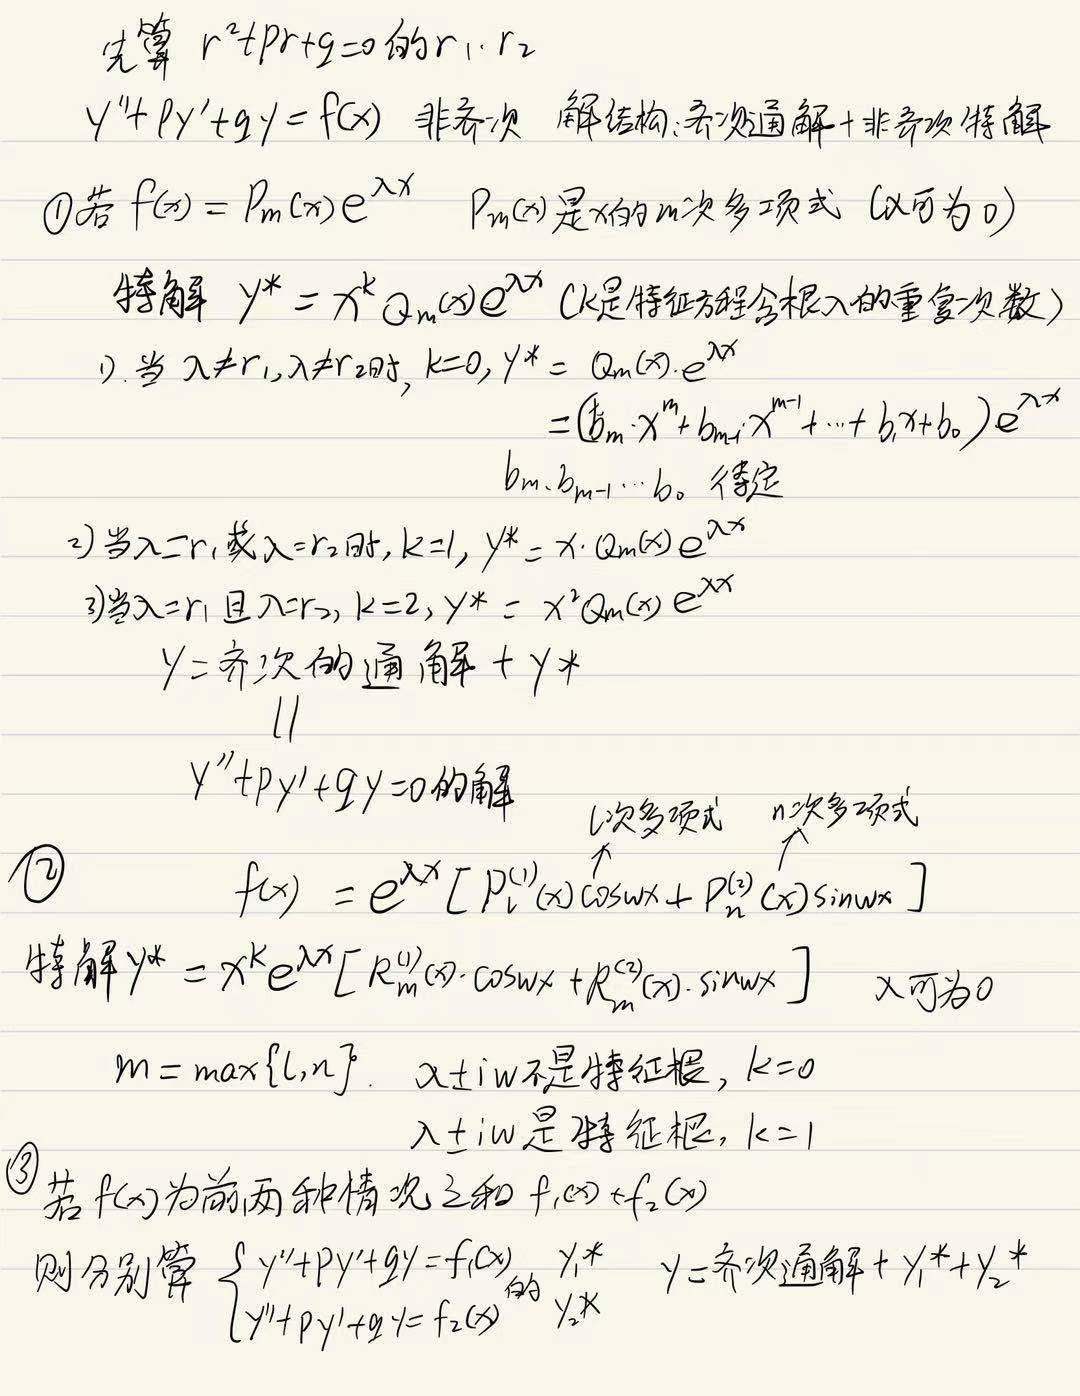 先算 r²+pr+q=0 的 r₁. r₂
y''+py'+qy=f(x) 非齐次 解结构:齐次通解+非齐次特解
①若 f(x)=Pm(x)e^λx Pm(x)是x的m次多项式 (λ可为0)
特解 y*=x^k Qm(x)e^λx (k是特征方程含根λ的重复次数)
1). 当 λ≠r₁,λ≠r₂时, k=0, y*= Qm(x)·e^λx
=(bm·x^m+bm-1·x^m-1+…+b₁x+b₀)e^λx
bm、bm-1…b₀ 待定
2)当λ=r₁或λ=r₂时, k=1, y*=x·Qm(x)e^λx
3)当λ=r₁且λ=r₂, k=2, y*= x²Qm(x)e^λx
y=齐次的通解+y*
||
y''+py'+qy=0的解
l次多项式 n次多项式
② f(x) =e^λx[Pl^(1)(x)cosωx+Pn^(2)(x)sinωx]
特解y*=x^k e^λx[Rm^(1)(x)·cosωx+Rm^(2)(x)·sinωx] λ可为0
m=max{l,n}. λ±iω不是特征根, k=0
λ±iω是特征根, k=1
③若f(x)为前两种情况之和 f₁(x)+f₂(x)
则分别算 { y''+py'+qy=f₁(x) 的 y₁* y=齐次通解+y₁*+y₂*
y''+py'+qy=f₂(x) y₂*